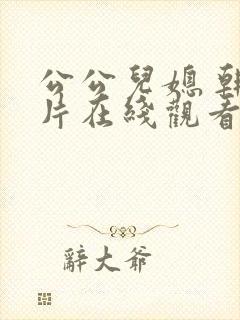 公公兒媳朝
片在綫觀看
辭大爺